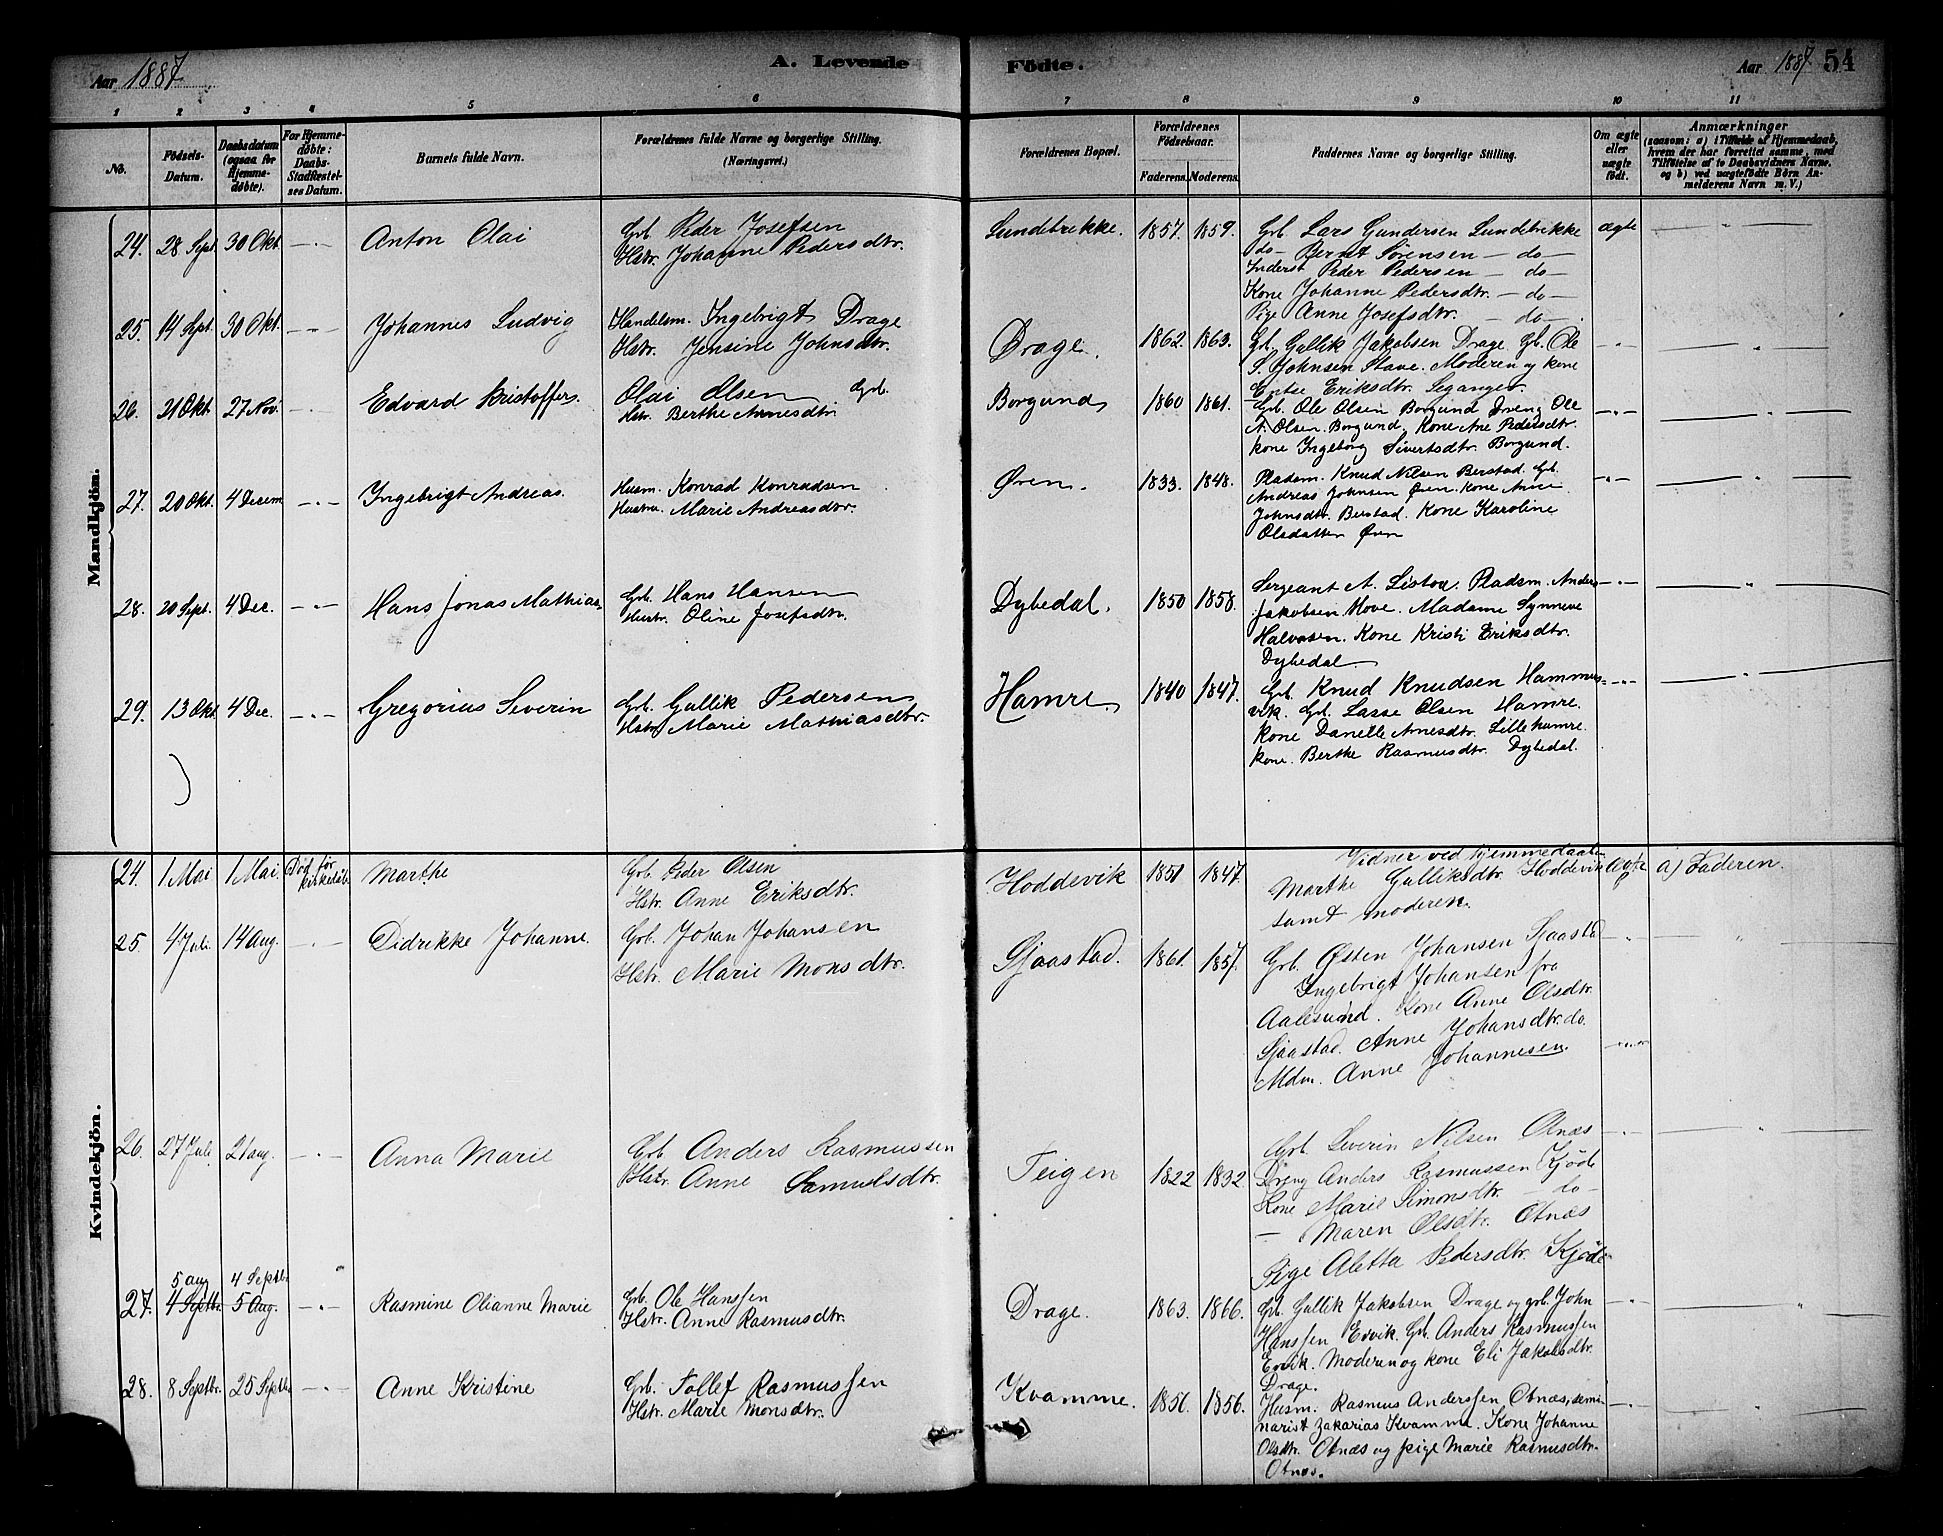 Aar 1887 A. Levende Fødte. Aar 1887 54
1 2 3 4 5 6 7 8 9 10 11
No.
Fødsels-Datum.
Daabsdatum (ogsaa for Hjemmedøbte).
For Hjemmedøbte: Daabs-Stadfæstelses Datum.
Barnets fulde Navn.
Forældrenes fulde Navne og borgerlige Stilling. (Næringsvei.)
Forældrenes Bopæl.
Forældrenes Fødselsaar. Faderens. Moderens.
Faddernes Navne og borgerlige Stilling.
Om ægte eller uægte født.
Anmærkninger (saasom: a) i Tilfælde af Hjemmedaab, hvem der har forrettet samme, med Tilføielse af to Daabsvidners Navne, og b) ved uægtefødte Børn Anmelderens Navn m. V.)
Mandkjön.
24. 28 Sept. 30 Okt. — Anton Olai
Grb. Peder Josefsen
Hstr. Johanne Pedersdtr.
Lundebrekke. 1857. 1859.
Grb. Lars Gundersen Lundebrekke
do— Bernt Sörensen — do—
Inderst Peder Pedersen — do—
Kone Johanne Pedersdtr. — do—
Pige Anne Josefsdtr. — do—
ægte — " —
25. 14 Spt. 30 Okt. — " — Johannes Ludvig
Handelsm. Ingebrigt Drage
Hstr. Jensine Johnsdtr.
Drage. 1862. 1863.
Gb. Gullik Jakobsen Drage. Gb. Ole
S. Johnsen Stave. Moderen og kone
Eriksdtr.
— " — — " —
26. 21 Okt. 27 Nov. — Edvard Kristoffer.
Olai Olsen Grb.
Hstr. Berthe Annesdtr.
Borgund 1860 1861.
Grb. Ole Olsen Borgund Dreng Ole
A. Olsen. Borgund. Kone Ane Pedersdtr.
kone Ingeborg Sivertsdtr. Borgund.
— " — — " —
27. 20 Okt. 4 Decem — " — Ingebrigt Andreas.
Husm. Konrad Konradsen
Hustru. Marie Andreasdtr.
Ören. 1833. 1848.
Pladsm. Knud Nilsen Berstad. Gb.
Andreas Johnsen Ören. Kone Anne
Johnsdtr. Berstad. Kone Karoline
Olsdatter Ören
— " — — " —
28. 20 Sept. 4 Dec. — " — Hans Jonas Mathias
Grb. Hans Hansen
Hustr. Oline Josefsdtr.
Dybedal. 1850 1858.
Sergeant A. Listou. Pladsm. Anders
Jakobsen Hove. Madame Synneve
Halvasen. Kone Kristi Eriksdtr.
Dybedal
— " — — " —
29. 13 Okt. 4 Dec. — " — Gregorius Severin
Grb. Gullik Pedersen
Hstr. Marie Mathiasdtr.
Hamre 1840 1847.
Grb Knud Knudsen Hammers-
vik. Grb. Lasse Olsen Hamre.
Kone Danelle Arnesdtr. Lillehamre
Kone. Berthe Rasmusdtr. Dybedal.
— " — — " —
Kvindekjön.
24. 1 Mai 1 Mai Död før kirkedåb Marthe
Grb. Peder Olsen
Hstr. Anne Eriksdtr.
Hoddevik 1851 1847.
Vidner ved hjemmedaaben
Marthe Gulliksdtr Hoddevik
samt moderen.
ægte a) Faderen.
25 4 Juli 14 Aug. — " — Didrikke Johanne.
Grb. Johan Johansen
Hstr. Marie Monsdtr.
Sjaastad. 1861. 1857.
Grb. Østen Johansen Sjaastad
Ingebrigt Johansen fra
Aalesund. Kone Anne Olsdtr.
Sjaastad. Anne Johansdtr. do.
Mdm. Anne Johannesen.
— " — — " —
26. 27 Juli. 21 aug. — " — Anna Marie
Grb Anders Rasmussen
Hstr. Anne Samulsdtr.
Teigen 1822 1832.
Grb. Severin Nilsen Otnæs
Dreng Anders Rasmussen Kjöde
Kone Marie Simonsdtr. — do—
— Maren Olsdtr. Otnæs
Pige Aletta Pedersdtr. Kjöde
— " — — " —
5 aug 4 Septbr.
27. 4 Septbr. 5 Aug. — " — Rasmine Olianne Marie
Grb. Ole Hanssen
Hstr. Anne Rasmusdtr.
Drage. 1863. 1866.
Grb. Gullik Jakobsen Drage og grb. John
Hanssen Ervik. Grb. Anders Rasmussen
Ervik. Moderen og kone Eli Jakobsdtr.
Drage.
— " — — " —
28. 8 Septbr. 25 Septbr. — " — Anne Kristine
Grb. Tollef Rasmussen
Hstr. Marie Monsdtr.
Kvamme. 1856. 1856.
Husm. Rasmus Anderssen Otnæs, semi-
narist Zakarias Kvamme. Kone Johanne
Olsdtr. Otnæs og pige Marie Rasmusdtr.
Otnæs.
— " — — " —